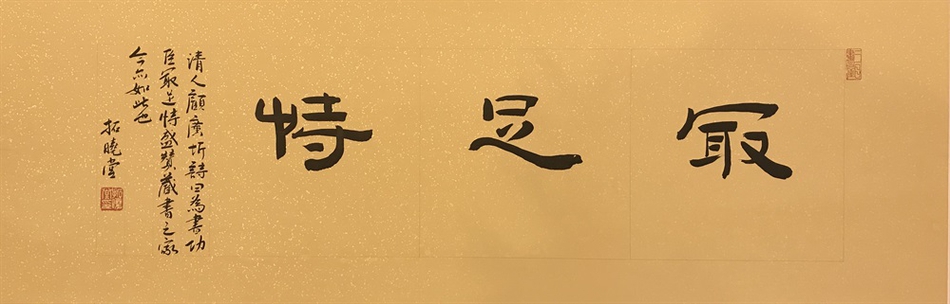 冣足恃
清人顧廣圻詩曰為書功
臣冣足恃盛贊藏書之家
今亦如此也
拓曉堂